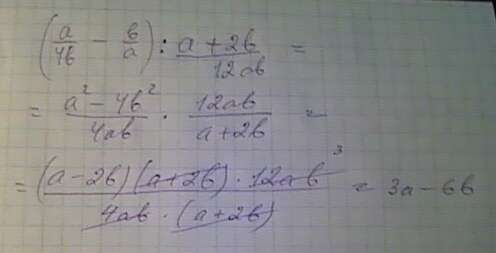 (a/4b − b/a) : a + 2b/12ab =
= a² − 4b²/4ab · 12ab/a + 2b =
= (a − 2b)(a + 2b) · 12ab ³/4ab · (a + 2b) = 3a − 6b